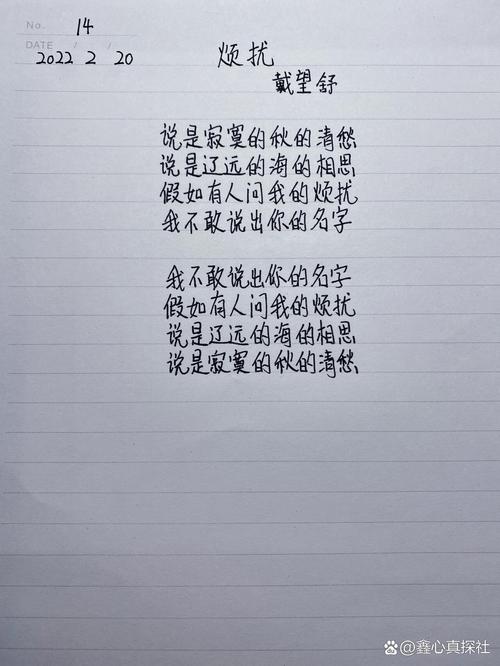 No. 14
DATE 2022 / 2 / 20
烦扰
戴望舒
说是寂寞的秋的清愁
说是辽远的海的相思
假如有人问我的烦扰
我不敢说出你的名字
我不敢说出你的名字
假如有人问我的烦扰
说是辽远的海的相思
说是寂寞的秋的清愁
鑫心真探社